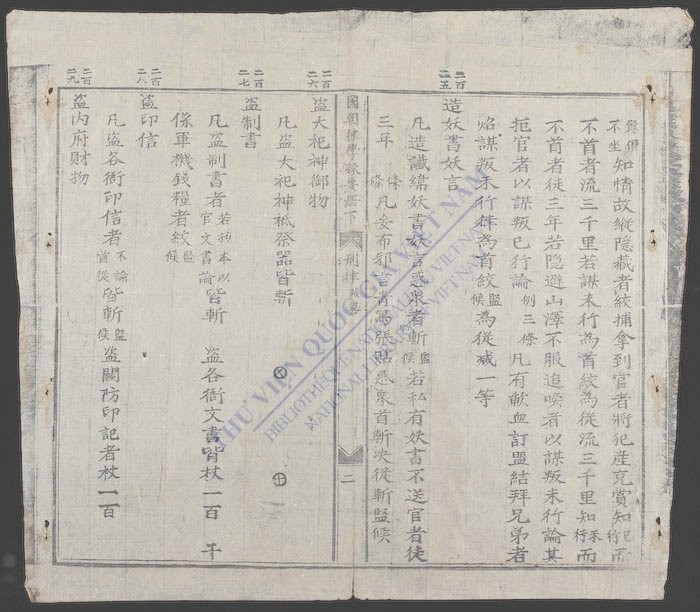 餘俱不坐知情故縱隱藏者絞捕拿到官者將犯產充賞知已行而
不首者流三千里若謀未行為首絞為從流三千里知未行而
不首者徒三年若隱避山澤不服追喚者以謀叛未行論其
拒官者以謀叛已行論例三條凡有歃血訂盟結拜兄弟者
焰謀叛未行律為首絞監候為從减一等
二百二五
造妖書妖言
凡造讖緯妖書妖言惑衆者斬監候若私有妖書不送官者徒
三年條條凡妄布邪言書寫張貼惑衆首斬决從斬監候
國朝律學揀要卷下 刑律 賊盜 二
二百二六
盗大祀神御物
凡盗大祀神祗祭器皆斬
二百二七
盗制書
凡盗制書者若抄本以官文書論皆斬 盗各衙文書皆杖一百 干
係軍機錢糧者絞監候
二百二八
盗印信
凡盗各衙印信者不論首從皆斬監候盗關防印記者杖一百
二百二九
盗内府財物
THƯ VIỆN QUỐC GIA VIỆT NAM
BIBLIOTHÈQUE NATIONALE DU VIETNAM
NATIONAL LIBRARY OF VIETNAM